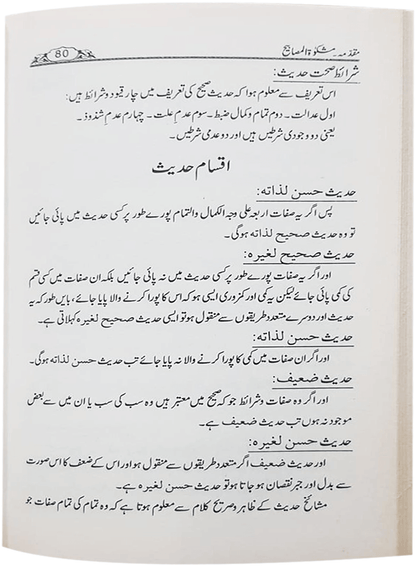 مقدمہ۔ مشکوٰۃ المصابیح
80
شرائط صحت حدیث:
اس تعریف سے معلوم ہوا کہ حدیث صحیح کی تعریف میں چار قیود و شرائط ہیں:
اول عدالت۔ دوم تمام و کمال ضبط۔ سوم عدم علت۔ چہارم عدم شذوذ۔
یعنی دو وجودی شرطیں ہیں اور دو عدمی شرطیں۔
اقسام حدیث
حدیث حسن لذاتہ:
پس اگر یہ صفات اربعہ علی وجہ الکمال والتمام پورے طور پر کسی حدیث میں پائی جائیں
تو وہ حدیث صحیح لذاتہ ہوگی۔
حدیث صحیح لغیرہ:
اور اگر یہ صفات پورے طور پر کسی حدیث میں نہ پائی جائیں بلکہ ان صفات میں کسی قسم
کی کمی پائی جائے لیکن یہ کمی اور کمزوری ایسی ہو کہ اس کا پورا کرنے والا پایا جائے، بایں طور کہ یہ
حدیث اور دوسرے متعدد طریقوں سے منقول ہو تو ایسی حدیث صحیح لغیرہ کہلاتی ہے۔
حدیث حسن لذاتہ:
اور اگر ان صفات میں کمی کا پورا کرنے والا نہ پایا جائے تب حدیث حسن لذاتہ ہوگی۔
حدیث ضعیف:
اور اگر وہ صفات و شرائط جو کہ صحیح میں معتبر ہیں وہ سب کی سب یا ان میں سے بعض
موجود نہ ہوں تب حدیث ضعیف ہے۔
حدیث حسن لغیرہ:
اور حدیث ضعیف اگر متعدد طریقوں سے منقول ہو اور اس کے ضعف کا اس صورت
سے بدل اور جبر نقصان ہو جاتا ہو تو حدیث حسن لغیرہ ہے۔
مشائخ حدیث کے ظاہر و صریح کلام سے معلوم ہوتا ہے کہ وہ تمام کی تمام صفات جو